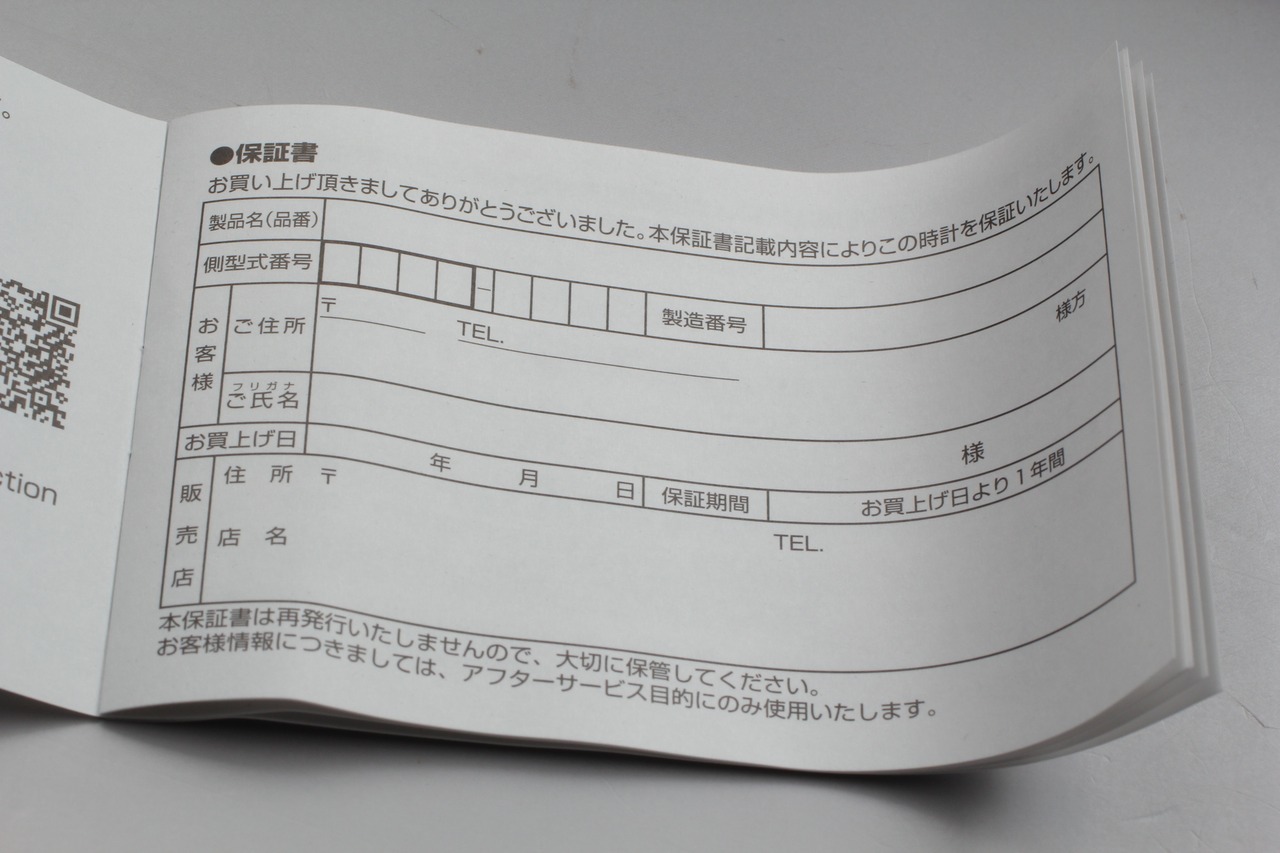 。
ction
●保証書
お買い上げ頂きましてありがとうございました。本保証書記載内容によりこの時計を保証いたします。
製品名(品番)
側型式番号 － 製造番号
お客様
ご住所 〒 TEL. 様方
フリガナ
ご氏名 様
お買上げ日 年 月 日 保証期間 お買上げ日より1年間
販売店
住所 〒
店名 TEL.
本保証書は再発行いたしませんので、大切に保管してください。
お客様情報につきましては、アフターサービス目的にのみ使用いたします。